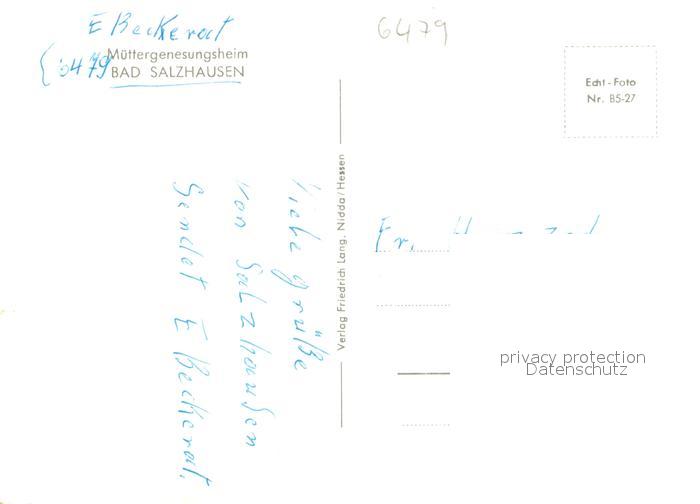 E Beckerat
6479
Müttergenesungsheim
{ 6479 BAD SALZHAUSEN
Echt-Foto
Nr. B5-27
Viehe grüße
von Salzhausen
Sendet E Beckerat.
Verlag Friedrich Lang, Nidda/Hessen
Fr.
privacy protection
Datenschutz